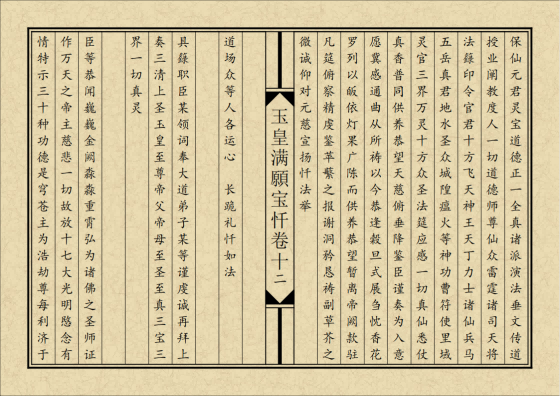 保仙元君灵宝道德正一全真诸派演法垂文传道
授业阐教度人一切道德师尊仙众雷霆诸司天将
法籙印令官君十方飞天神王天丁力士诸仙兵马
五岳真君地水圣众城隍瘟火等神功曹符使里域
灵官三界万灵十方众圣法筵应感一切真仙悉仗
真香普同供养恭望天慈俯垂降鉴臣谨奏为入意
愿冀感通曲从所祷以今恭逢穀旦式展刍忱香花
罗列以皈依灯果广陈而供养恭望暂离帝阙款驻
凡筵俯察精虔鉴苹蘩之报谢洞矜恳祷副草芥之
微诚仰对元慈宣扬忏法举
玉皇满願宝忏卷十二
道场众等人各运心 长跪礼忏如法
具籙职臣某领词奉大道弟子某等谨虔诚再拜上
奏三清上圣玉皇至尊帝父帝母至圣至真三宝三
界一切真灵
臣等恭闻巍巍金阙淼淼重霄弘为诸佛之圣师证
作万天之帝主慈悲一切故放十七大光明愍念有
情特示三十种功德是穹苍主为浩劫尊每利济于